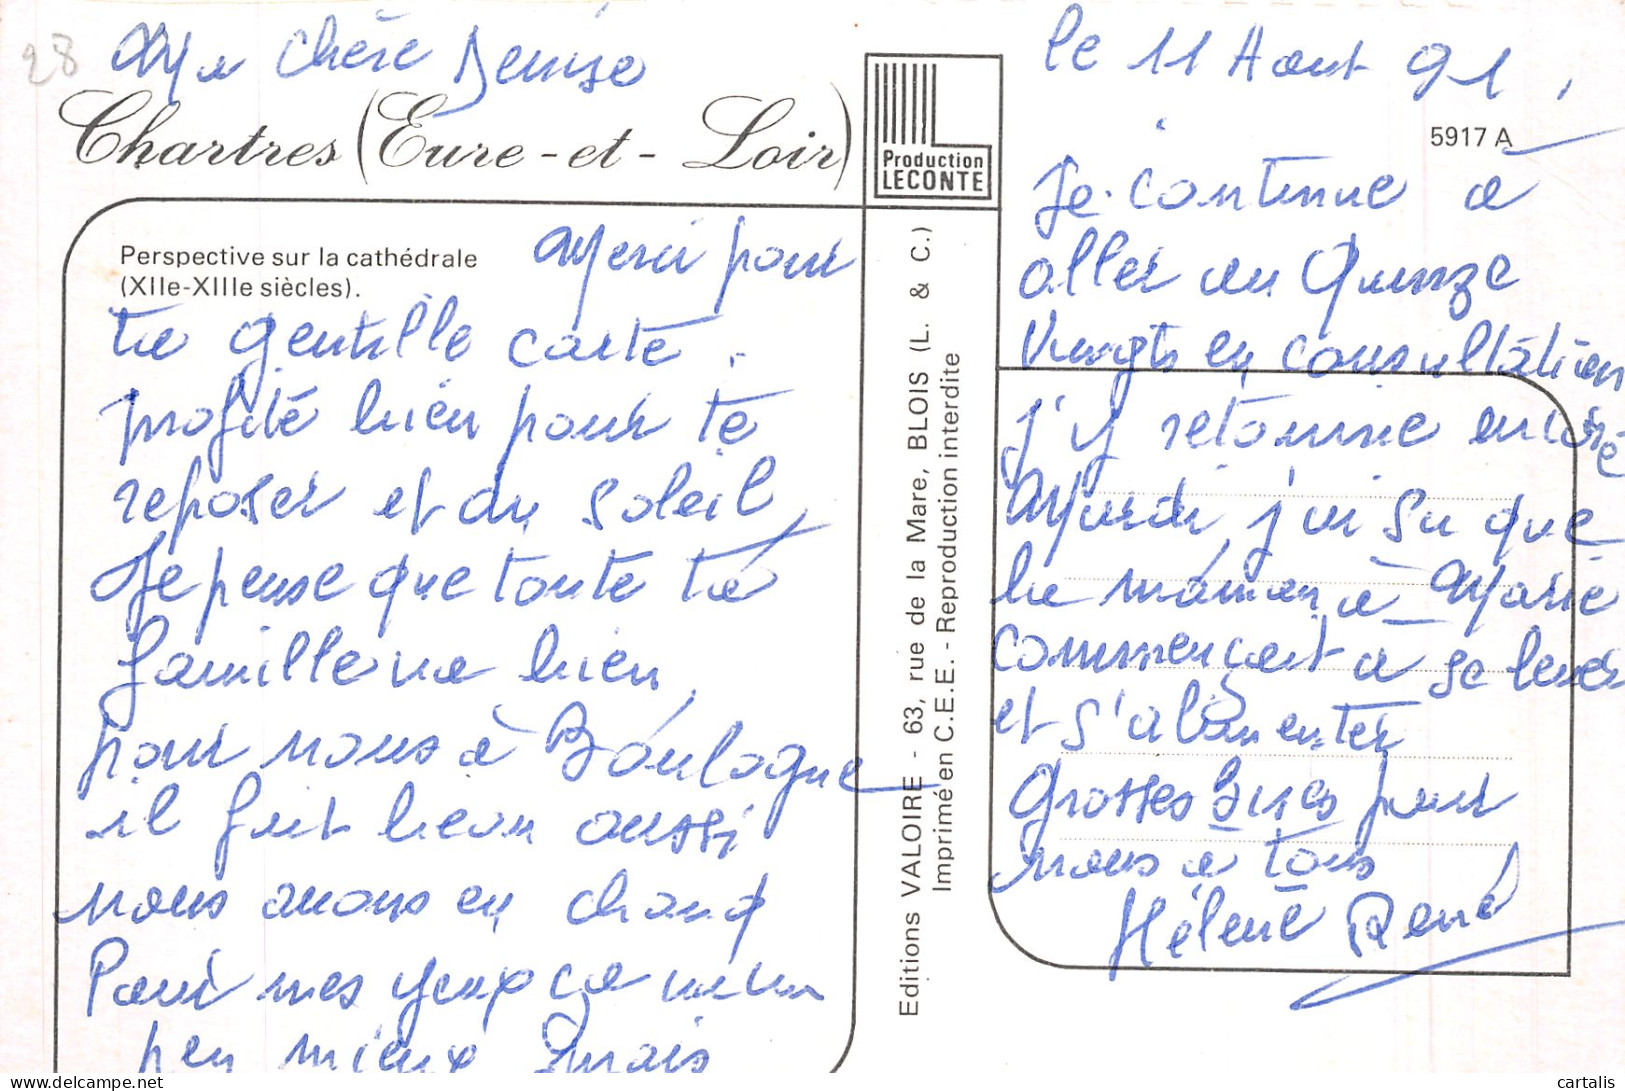 28
Ma chère Denise
Chartres (Eure-et-Loir)
Perspective sur la cathédrale
(XIIe-XIIIe siècles).
Merci pour
ta gentille carte.
profite bien pour te
reposer et du soleil,
Je pense que toute ta
famille va bien,
pour nous à Boulogne
il fait beau aussi
nous avons eu chaud
Pour mes yeux ça va un
peu mieux mais
Production
LECONTE
Editions VALOIRE - 63, rue de la Mare, BLOIS (L. & C.)
Imprimé en C.E.E. - Reproduction interdite
le 11 Aout 91,
5917 A
Je continue a
aller au Quinze
Vingts en consultation
j'y retourne encore
Mardi, j'ai su que
la maman à Marie
commençait a se lever
et s'alimenter
Grosses bises pour
vous a tous
Hélène René
cartalis